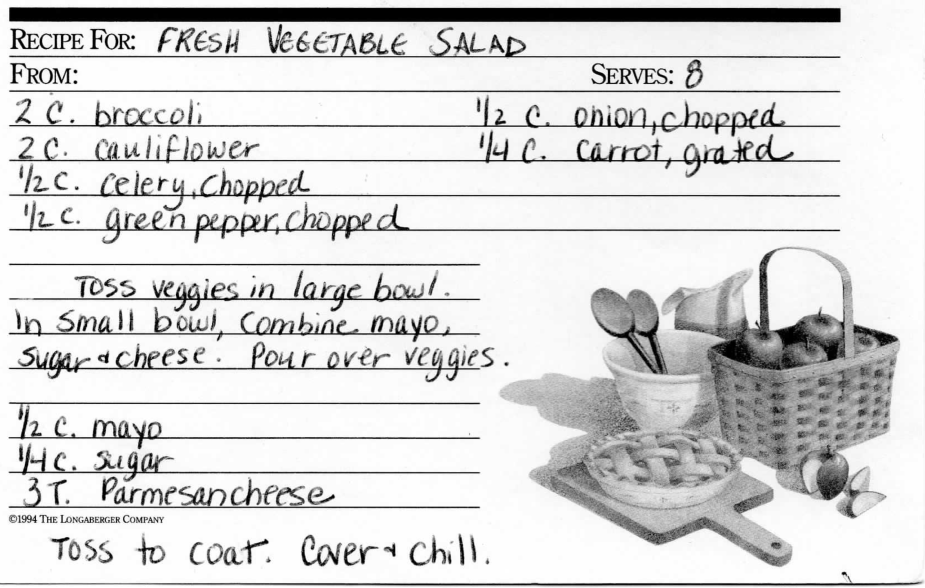 RECIPE FOR: FRESH VEGETABLE SALAD
FROM: SERVES: 8
2 C. broccoli 1/2 C. onion, chopped
2 C. cauliflower 1/4 C. carrot, grated
1/2 C. celery, chopped
1/2 C. green pepper, chopped
Toss veggies in large bowl.
In small bowl, combine mayo,
sugar & cheese. Pour over veggies.
1/2 C. mayo
1/4 C. sugar
3 T. Parmesan cheese
©1994 THE LONGABERGER COMPANY
Toss to coat. Cover & chill.